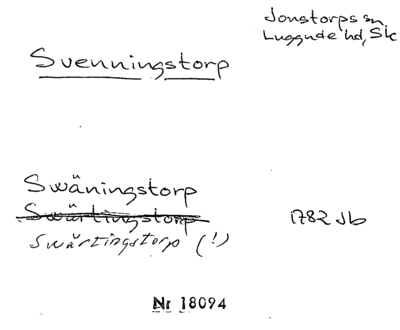 Jonstorps sn,
Luggude hd, Sk
Svenningstorp
Swäningstorp
Swärtingstorp
Swärtingstorp (!)
1782 Jb
Nr 18094